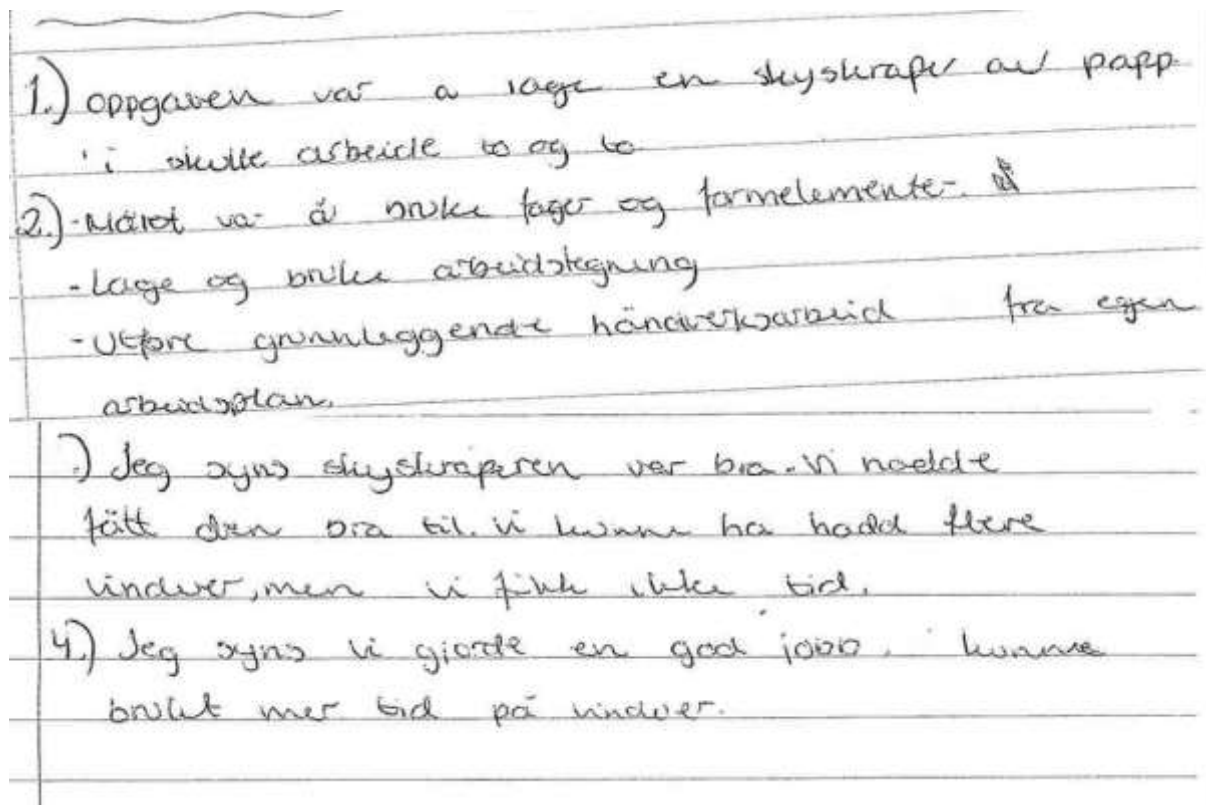 1.) oppgaven var a lage en skyskraper av papp.
i skulle arbeide to og to
2.) - Målet va- å bruke farger og formelementer.
- Lage og bruke arbeidstegning
- Utføre grunnleggende håndverksarbeid fra egen
arbeidsplan.
.) Jeg syns skyskraperen var bra. Vi hadde
fått den bra til. Vi kunne ha hadd flere
vinduer, men vi fikk ikke tid.
4.) Jeg syns vi gjorde en god jobb. kunne
brukt mer tid på vinduer.